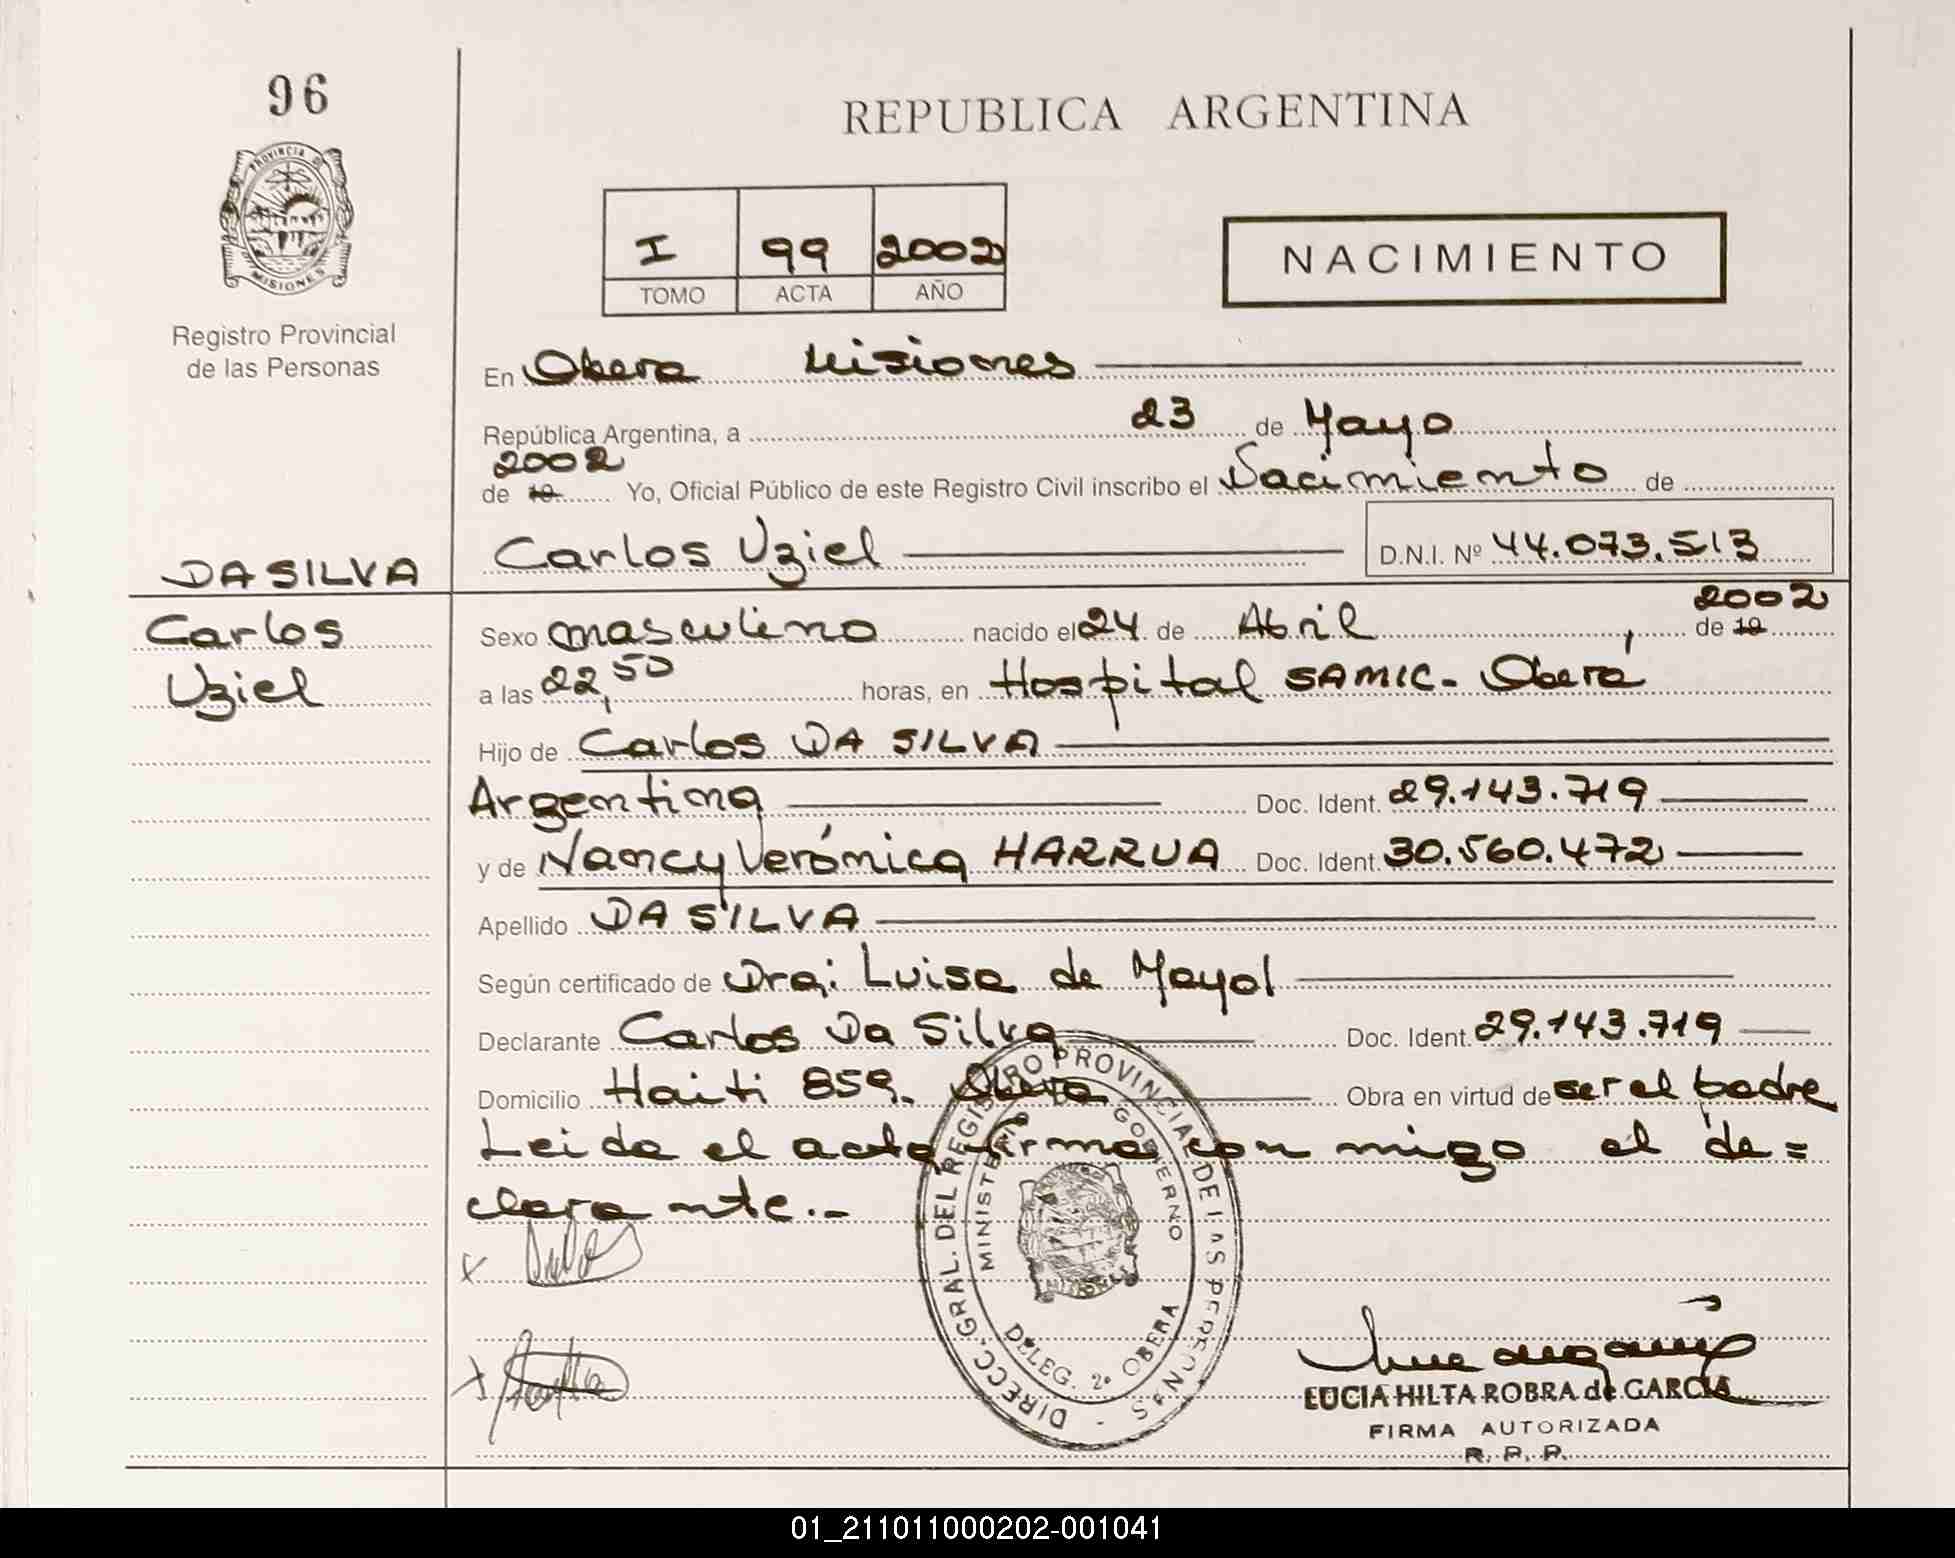 96
PROVINCIA D
MISIONES
Registro Provincial
de las Personas
REPUBLICA ARGENTINA
I 99 2002
TOMO ACTA AÑO
NACIMIENTO
En Obera Misiones
República Argentina, a 23 de Mayo
2002
de 19 Yo, Oficial Público de este Registro Civil inscribo el Nacimiento de
Carlos Uziel D.N.I. Nº 44.073.513
DA SILVA
Carlos
Uziel
2002
Sexo masculino nacido el 24 de Abril, de 19
a las 22,50 horas, en Hospital SAMIC- Oberá
Hijo de Carlos DA SILVA
Argentina Doc. Ident. 29.143.719
y de Nancy Verónica HARRUA Doc. Ident. 30.560.472
Apellido DA SILVA
Según certificado de Dra: Luisa de Mayol
Declarante Carlos Da Silva Doc. Ident. 29.143.719
Domicilio Haiti 859. Obera Obra en virtud de ser el padre
Leida el acta firma con migo el de=
clara nte.-
DIRECC. GRAL. DEL REGISTRO PROVINCIAL DE LAS PERSONAS -
MINISTERIO GOBIERNO
DELEG. 2º OBERA
LUCIA HILTA ROBRA de GARCIA
FIRMA AUTORIZADA
R. P. P.
01_211011000202-001041